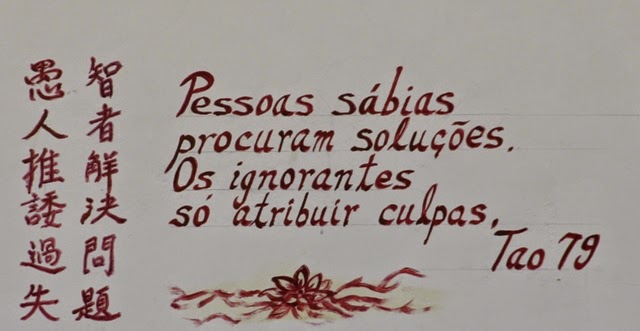 智者解決問題
愚人推諉過失
Pessoas sábias
procuram soluções.
Os ignorantes
só atribuir culpas.
Tao 79